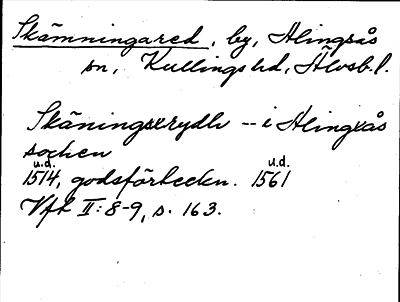 Skämningared, by, Alingsås
sn, Kullings hd, Älvsb. l.
Skäningxrydh -- i Alingxås
sochen
u.d. u.d.
1514, godsförteckn. 1561
Vfl II: 8-9, s. 163.